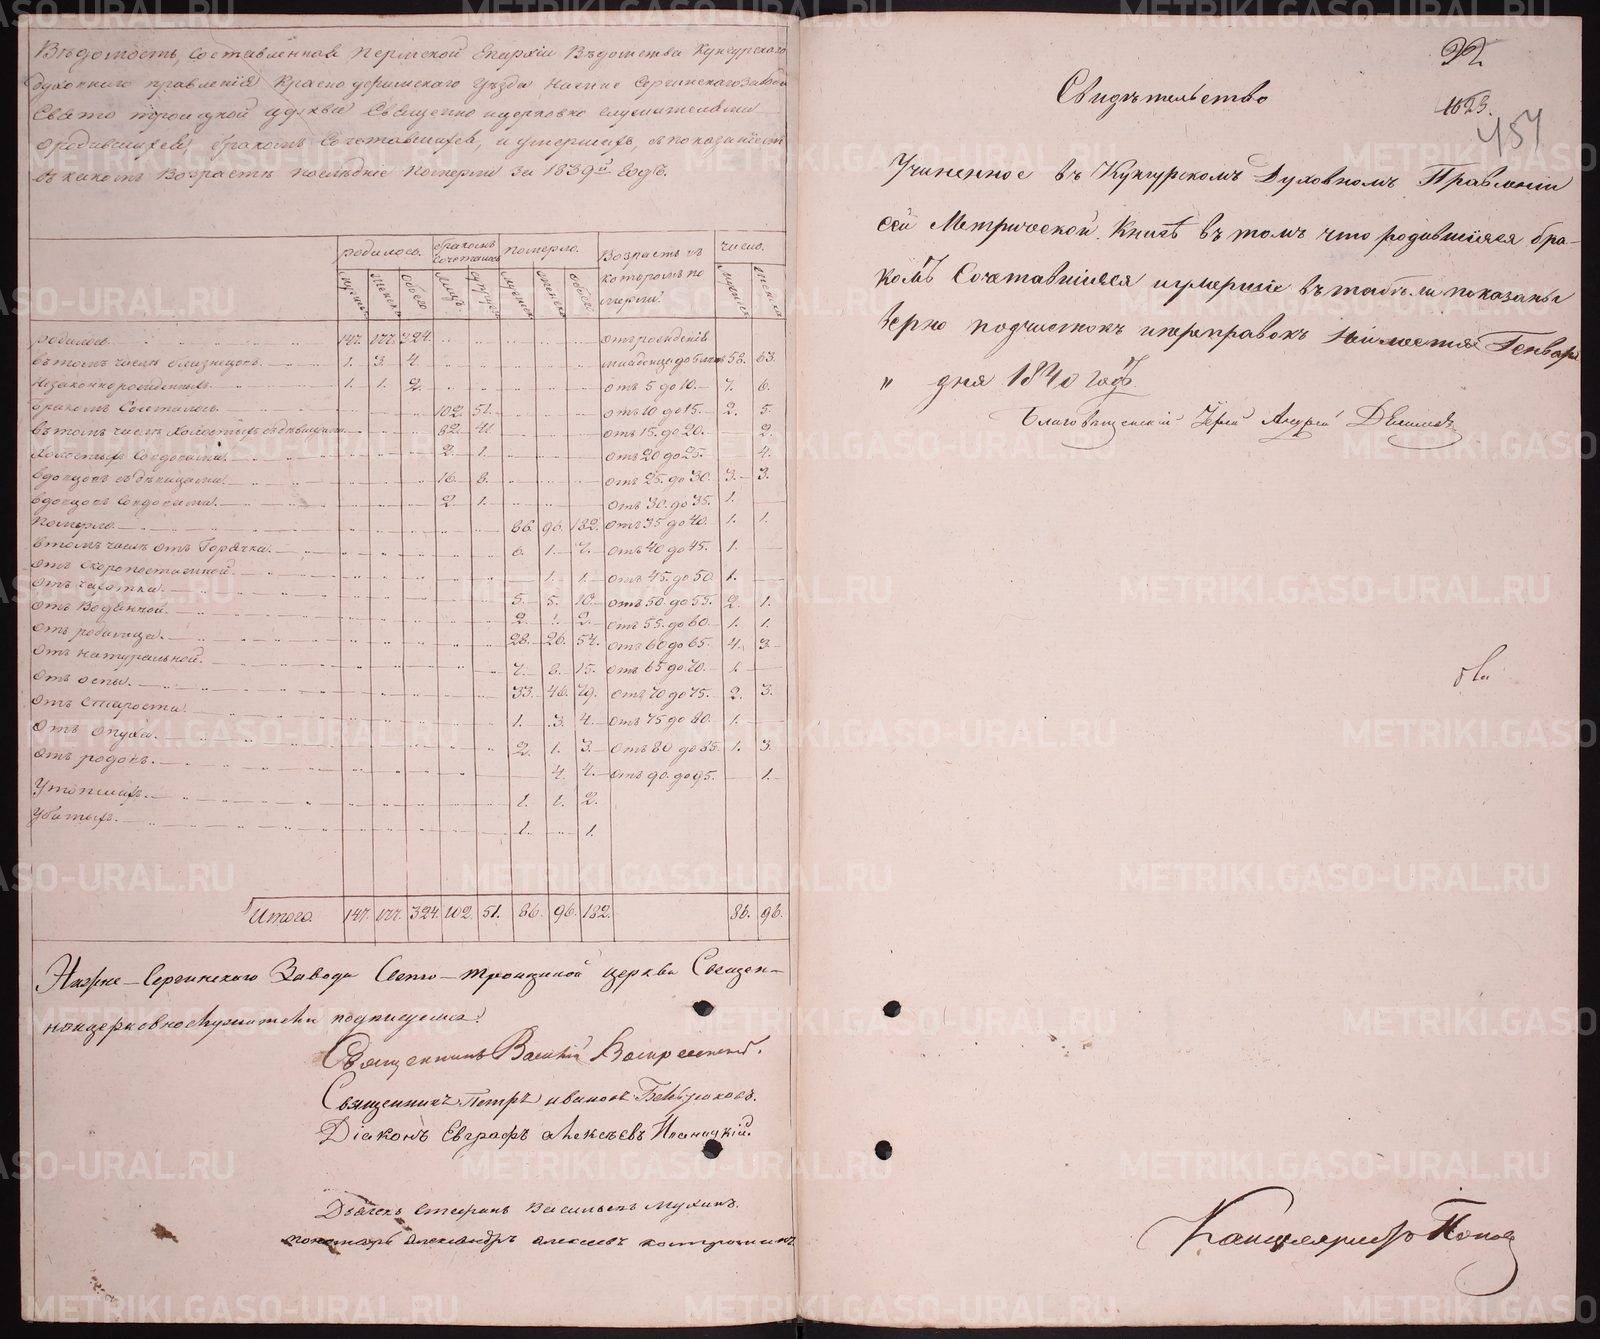 Вѣдомость, составленная Пермской Епархіи Вѣдомства Кунгурскаго
духовнаго правленія Красноуфимскаго уѣзда Нижне Сергинскаго Завода
Свято Троицкой церкви Священно и церковно служителями
о родившихся, бракомъ сочетавшихся, и умершихъ, съ показаніемъ
въ какомъ возрастѣ последніе померли за 1839й годъ.
родилось. бракомъ сочеталось померло. Возрастъ въ которомъ померли. число.
мужеска женска обоего лицъ супруж. мужеска женска обоего мужеска женска
родилось 147. 177. 324. отъ рожденія
въ томъ числѣ близнецовъ. 1. 3. 4. младенца до 5 лѣтъ 58. 63.
незаконнорожденныхъ. 1. 1. 2. отъ 5 до 10. 7. 6.
бракомъ сочеталось. 102. 51. отъ 10 до 15. 2. 5.
въ томъ числѣ холостыхъ съ дѣвицами. 82. 41. отъ 15. до 20. 2.
холостыхъ со вдовами. 2. 1. отъ 20 до 25. 4.
вдовцовъ съ дѣвицами. 16. 8. отъ 25. до 30. 3. 3.
вдовцовъ со вдовами. 2. 1. отъ 30. до 35. 1.
померло. 86. 96. 182. отъ 35 до 40. 1. 1.
въ томъ числѣ отъ горячки. 6. 1. 7. отъ 40 до 45. 1.
отъ скоропостижной. 1. 1. отъ 45. до 50. 1.
отъ чахотки. 5. 5. 10. отъ 50. до 55. 2. 1.
отъ водяной. 2. 2. отъ 55. до 60. 1. 1.
отъ родимца. 28. 26. 54. отъ 60 до 65. 4. 3.
отъ натуральной. 7. 8. 15. отъ 65 до 70. 1.
отъ оспы. 33. 46. 79. отъ 70 до 75. 2. 3.
отъ старости. 1. 3. 4. отъ 75 до 80. 1.
отъ опухи. 2. 1. 3. отъ 80 до 85. 1. 3.
отъ родовъ. 4. 4. отъ 90. до 95. 1.
Утопшихъ. 1. 1. 2.
Убитыхъ. 1. 1.
Итого. 147. 177. 324. 102. 51. 86. 96. 182. 86. 96.
Нижне-Сергинскаго Завода Свято-Троицкой церкви Священ-
ноцерковнослужители подписуемся:
Священникъ Василій Воскресенскій.
Священникъ Петръ Ивановъ
Діаконъ Евграфъ Алексѣевъ
Дьячекъ Стефанъ Васильевъ Мухинъ.
пономарь Александръ Алексеевъ
22
1623.
457
Свидѣтельство
Учиненное въ Кунгурскомъ Духовномъ Правленіи
сей Метрической Книгѣ въ томъ что родившіяся бра-
комъ Сочетавшіяся и умершіе въ табели показаны
верно подчистокъ и переправокъ неимеется Генваря
" дня 1840 годъ.
Благовѣщенскій Іерей Андрей
Канцеляристъ Попов
METRIKI.GASO-URAL.RU